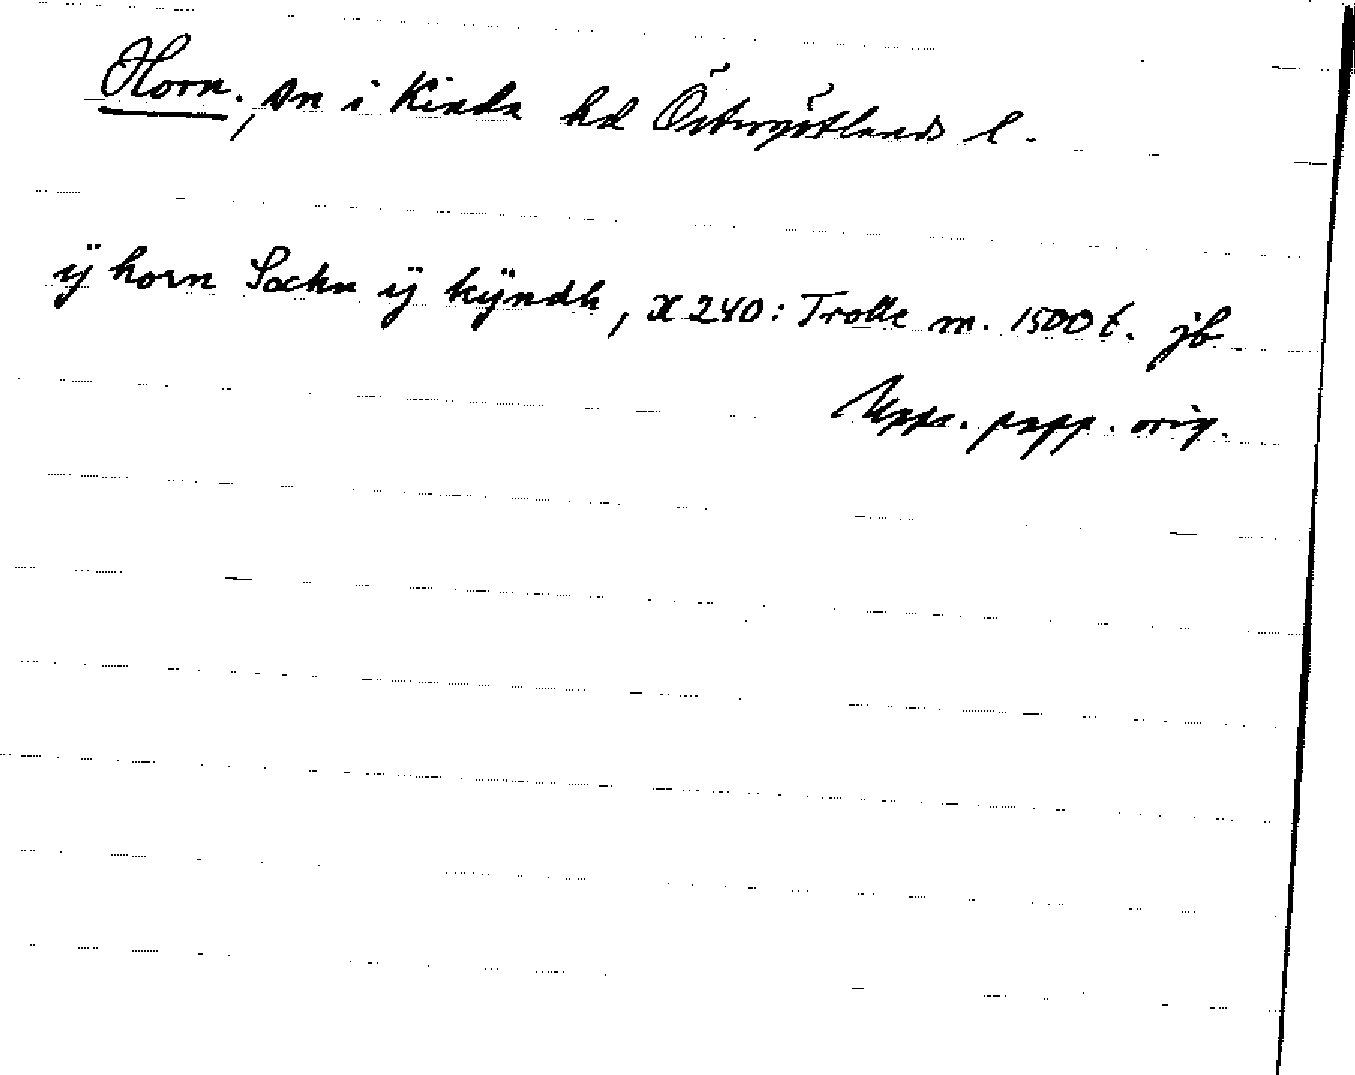 Horn, sn i Kinda hd Östergötlands l.
ÿ horn Sockn ÿ kÿndh, X 240: Trolle m. 1500 t. jb
Upps. papp. orig.